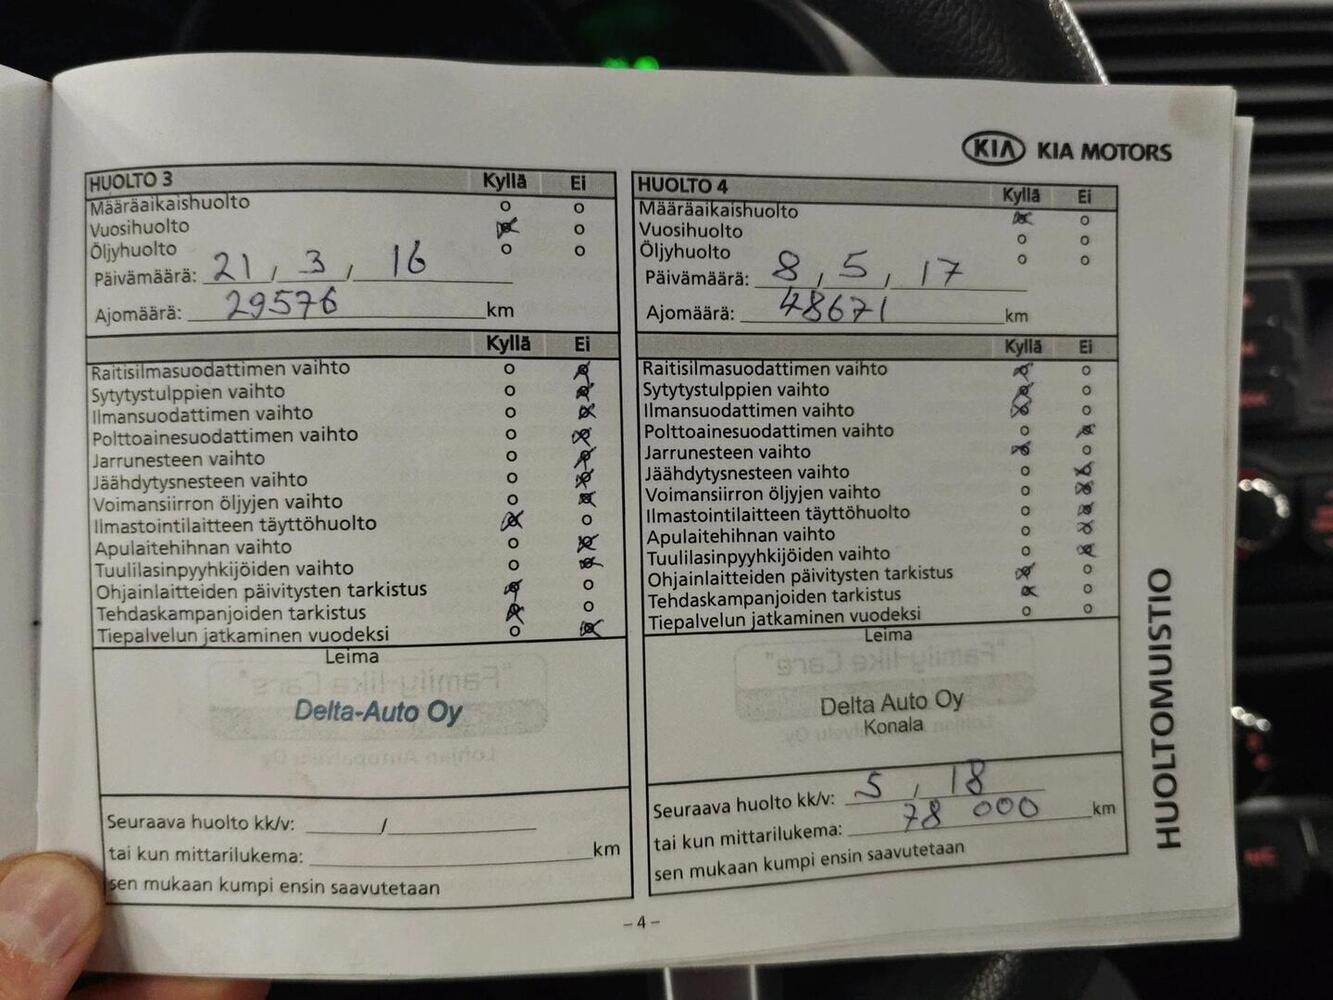 KIA KIA MOTORS
HUOLTO 3 Kyllä Ei
Määräaikaishuolto o o
Vuosihuolto o
Öljyhuolto o o
Päivämäärä: 21 / 3 / 16
Ajomäärä: 29576 km
Kyllä Ei
Raitisilmasuodattimen vaihto o
Sytytystulppien vaihto o
Ilmansuodattimen vaihto o
Polttoainesuodattimen vaihto o
Jarrunesteen vaihto o
Jäähdytysnesteen vaihto o
Voimansiirron öljyjen vaihto o
Ilmastointilaitteen täyttöhuolto o
Apulaitehihnan vaihto o
Tuulilasinpyyhkijöiden vaihto o
Ohjainlaitteiden päivitysten tarkistus o
Tehdaskampanjoiden tarkistus o
Tiepalvelun jatkaminen vuodeksi o
Leima
Delta-Auto Oy
Seuraava huolto kk/v: /
tai kun mittarilukema: km
sen mukaan kumpi ensin saavutetaan
HUOLTO 4 Kyllä Ei
Määräaikaishuolto o
Vuosihuolto o o
Öljyhuolto o o
Päivämäärä: 8 / 5 / 17
Ajomäärä: 48671 km
Kyllä Ei
Raitisilmasuodattimen vaihto o
Sytytystulppien vaihto o
Ilmansuodattimen vaihto o
Polttoainesuodattimen vaihto o
Jarrunesteen vaihto o
Jäähdytysnesteen vaihto o
Voimansiirron öljyjen vaihto o
Ilmastointilaitteen täyttöhuolto o
Apulaitehihnan vaihto o
Tuulilasinpyyhkijöiden vaihto o
Ohjainlaitteiden päivitysten tarkistus o
Tehdaskampanjoiden tarkistus o
Tiepalvelun jatkaminen vuodeksi o o
Leima
Delta Auto Oy
Konala
Seuraava huolto kk/v: 5 / 18
tai kun mittarilukema: 78 000 km
sen mukaan kumpi ensin saavutetaan
HUOLTOMUISTIO
– 4 –